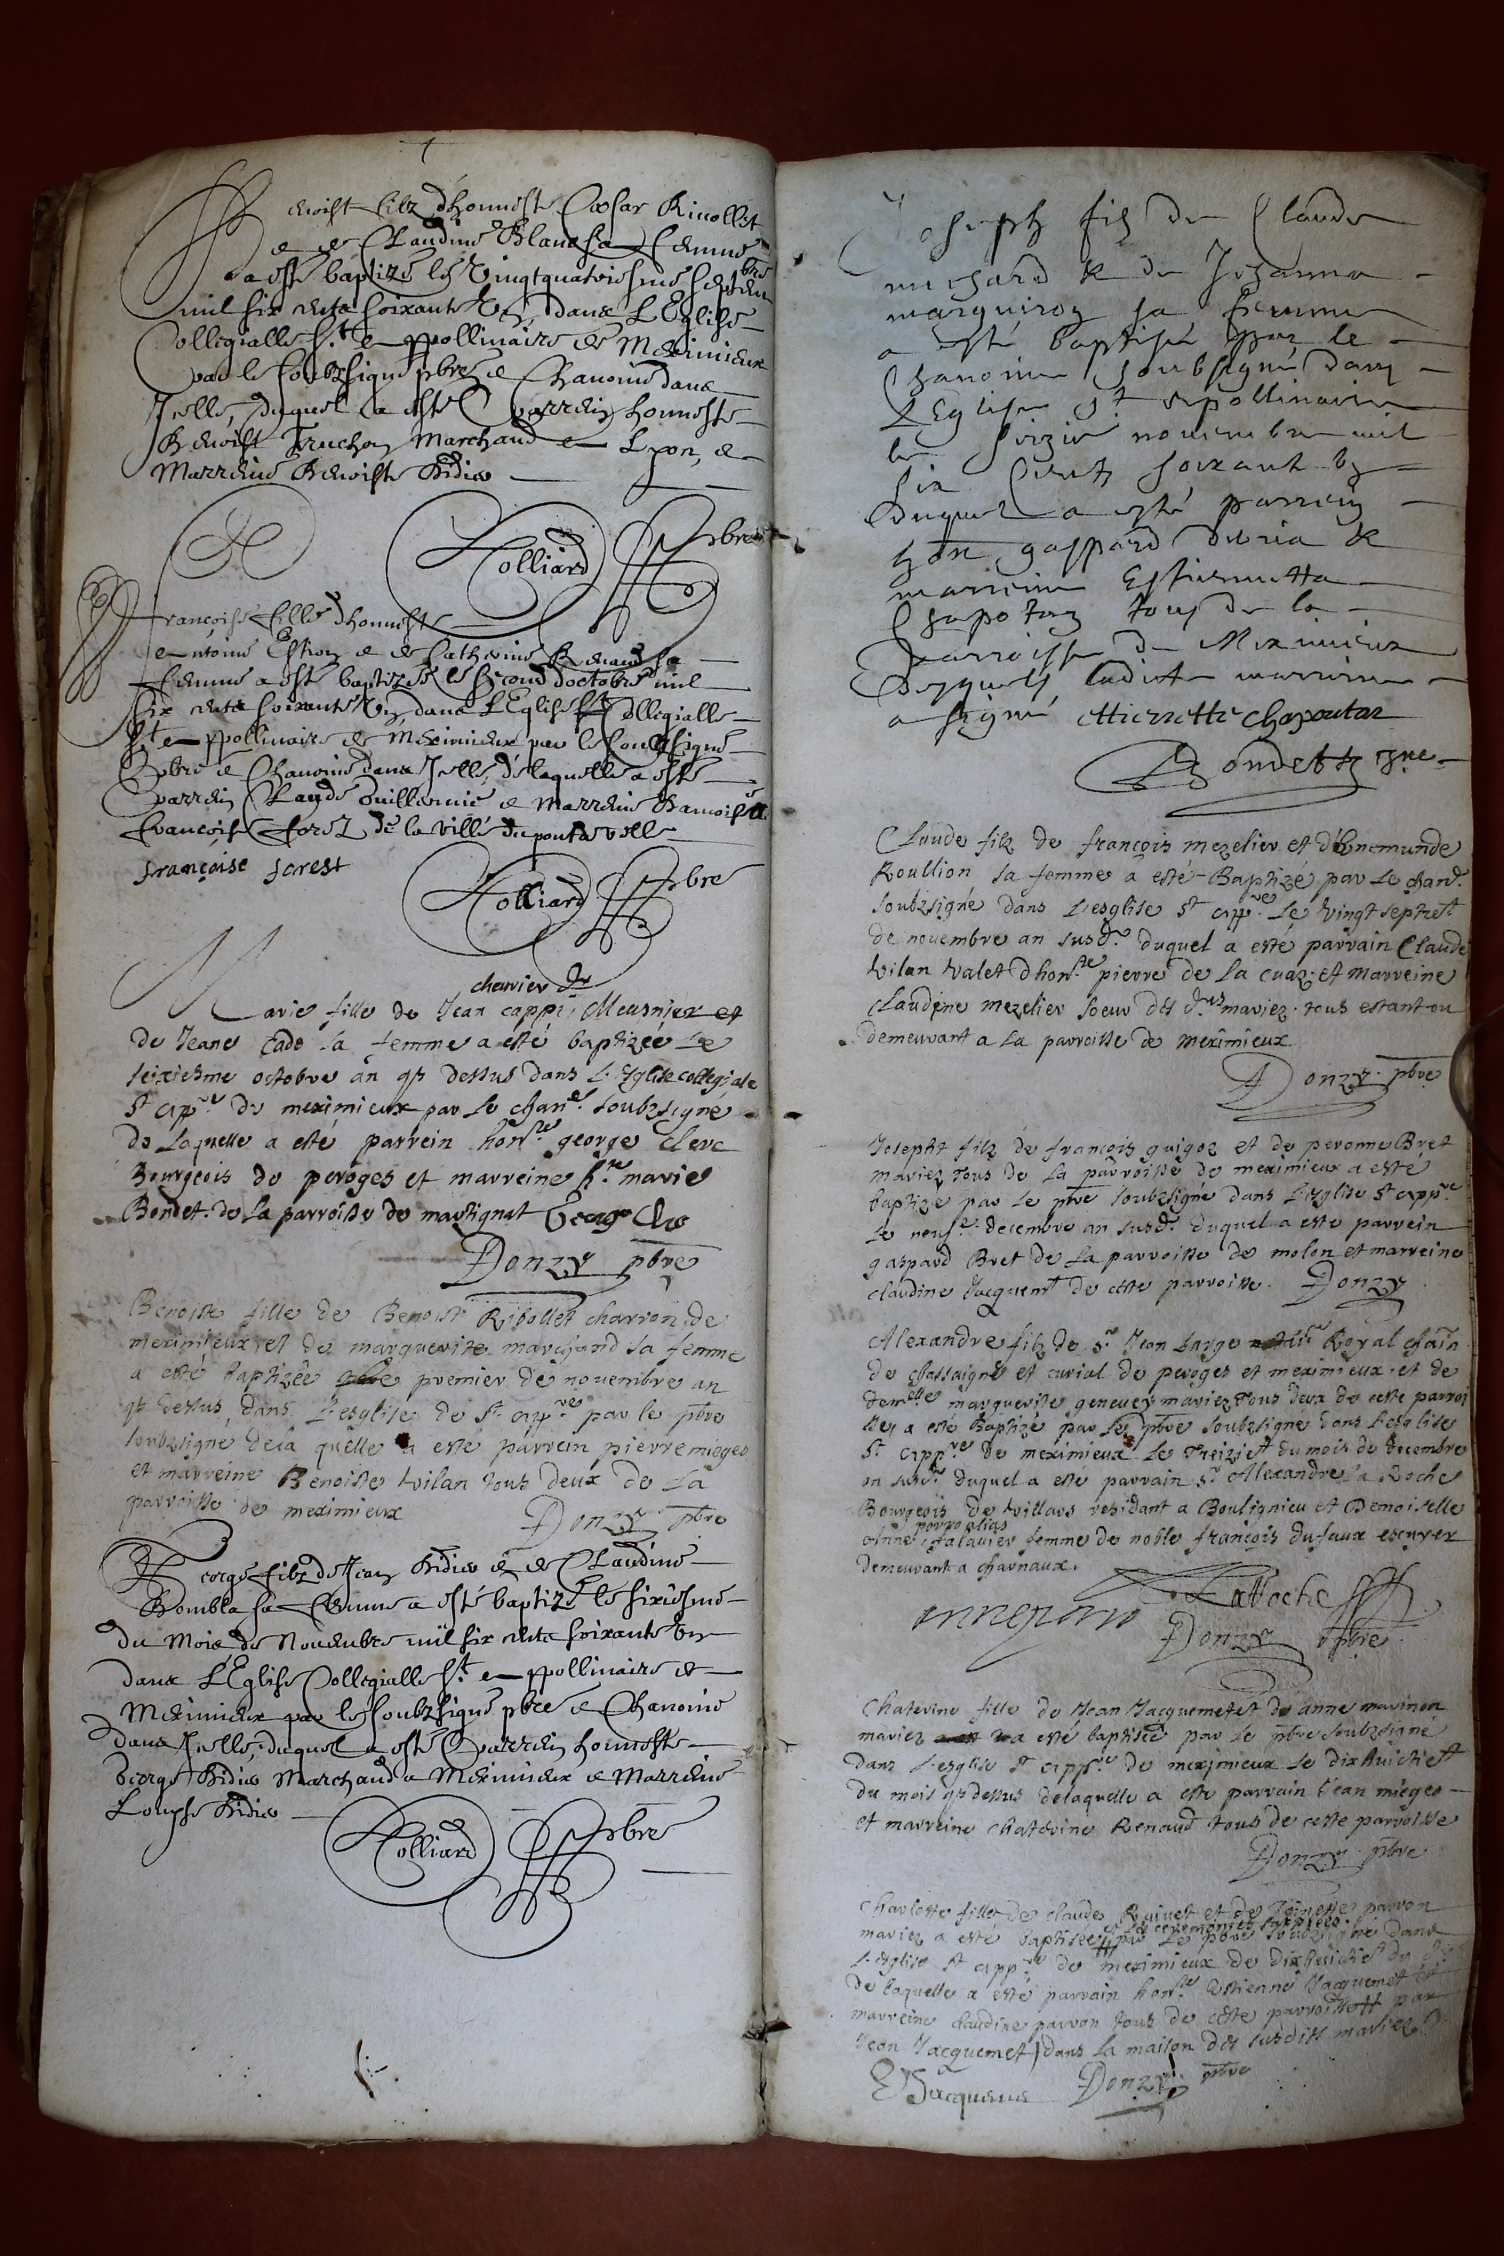 Benoist filz d'honneste Cæsar Rivollet
et de Claudine Blanc sa femme
a esté baptizé le vingtquatriesme septembre
mil six cents soixante un, dans L'Eglise
Collegialle St Appollinaire de Meximieux
par le soubzsigné pbre et Chanoine dans
Icelle, duquel a esté parrein honneste
Benoist Truchon Marchand a Lyon, et
Marreine Benoiste Bidie
Holliard pbre
Françoise fille d'honneste
Antoine et de Catherine Renaud sa
femme a esté baptizée le second d'octobre mil
six cents soixante un, dans L'Eglise Collegialle
St Appollinaire de Meximieux par le soubsigné
pbre et Chanoine dans Icelle, de laquelle a esté
parrein Claude Guillermie et Marreine Damoiselle
Françoise Forest de la ville du pontdevelle
françoise forest
Holliard pbre
charier dr
Marie fille de Jean cappi Meusnier et
de Jeane Cade sa femme a esté baptizée le
seiziesme octobre an qs dessus dans L'Eglise collegiale
St App.re de meximieux par le chan.e soubzsigné
de Laquelle a esté parrein hon.te george clerc
Bourgeois de peroges et marreine h.te marie
Bondet de La parroisse de martignat George Cler
Donzy pbre
Benoiste fille de Benoist Ribollet charron de
meximieux et de marguerite marchand sa femme
a esté baptizée le premier de novembre an
qs dessus, dans L'esglise de St App.re par le pbre
soubzsigne dela quelle a esté parrein pierre mieges
et marreine Benoiste vilan tous deux de La
parroisse de meximieux
Donzy pbre
George filz de Jean Bidie et de Claudine
Rombla sa femme a esté baptizé le sixiesme
du Mois de Novembre mil six cents soixante un
dans L'Eglise Collegialle St Appollinaire de
Meximieux par le soubzsigné pbre et Chanoine
dans Icelle, duquel a esté Parrein honneste
George Bidie Marchand a Meximieux et Marreine
Louyse Bidie
Holliard pbre
Joseph fils de Claude
michard & de Jeanna
marguiron sa femme
a esté baptisé par le
Chanoine soubsigné dans
L'Eglise St Apollinaire
le seizie novembre mil
six Cents soixant un
Duquel a esté parrein
hon. gaspard &
marreine Estiennetta
Chapotan tous de la
parroisse de Meximieux
Desquels ladicte marreine
a signé ettiennette chapoutan
Bondet chne
Claude filz de françois mezelier et d'Enemunde
Roullion sa femme a esté Baptizé par Le chan.
soubzsigné dans L'esglise St App.re Le vingt septiest
de novembre an susd. duquel a esté parrain Claude
vilan valet d'hon.te pierre de La cuaz et marreine
Claudine mezelier soeur des d.ts mariez tous estant ou
demeurant a La parroisse de meximieux
Donzy pbre
Josepht filz de françois guigoz et de peronne Bret
mariez tous de La parroisse de meximieux a esté
baptizé par Le pbre soubzsigné dans L'Eglise St App.re
Le neuf.e decembre an susd. duquel a esté parrein
gaspard Bret de La parroisse de molon et marreine
claudine Jacquemt de ceste parroisse. Donzy
Alexandre filz de Sr Jean Large Royal chain
de Chassaigne et curial de peroges et meximieux et de
Dem.elle marguerite genevey mariez tous deux de ceste parroi
sse, a esté Baptizé par Le pbre soubzsigne dans L'esglise
St App.re de meximieux Le Treiziet du mois de decembre
an susd. duquel a esté parrain Sr Alexandre La Roche
Bourgeois de Villars residant a Boulignieu et Demoiselle
Anne femme de noble françois dufaux escuyer
demeurant a charnaux.
LaRoche
Donzy pbre
Chaterine fille de Jean Jacquemet et de anne marinon
mariez a esté baptisée par Le pbre soubzsigné
dans L'esglise St App.re de meximieux Le dixhuictiest
du mois qs dessus delaquelle a esté parrain Jean mieges
et marreine chaterine Renaud tous de ceste parroisse
Donzy pbre
Charlotte fille de claude et de parron
mariez a esté baptisée et Les ceremonies par Le pbre soubzsigné dans
L'Esglise St App.re de meximieux Le dixhuictiest du
de Laquelle a esté parrain hon.te Estienne Jacquemet et
marreine claudine parron tous de ceste parroisse par
Jean Jacquemet dans La maison des susdits mariez
E Jacqueme Donzy pbre